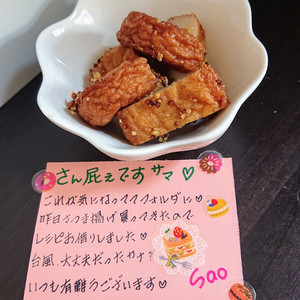 さん屁えですサマ♡
これが気になっててフォルダに♡
昨日さつま揚げ買ってきたので
レシピお借りしました♡
台風、大丈夫だったカナ?
いつも有難うございます♡
Sao